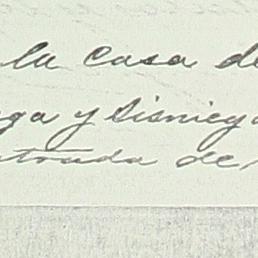 la casa de
ga y Sisniega
ntrada de